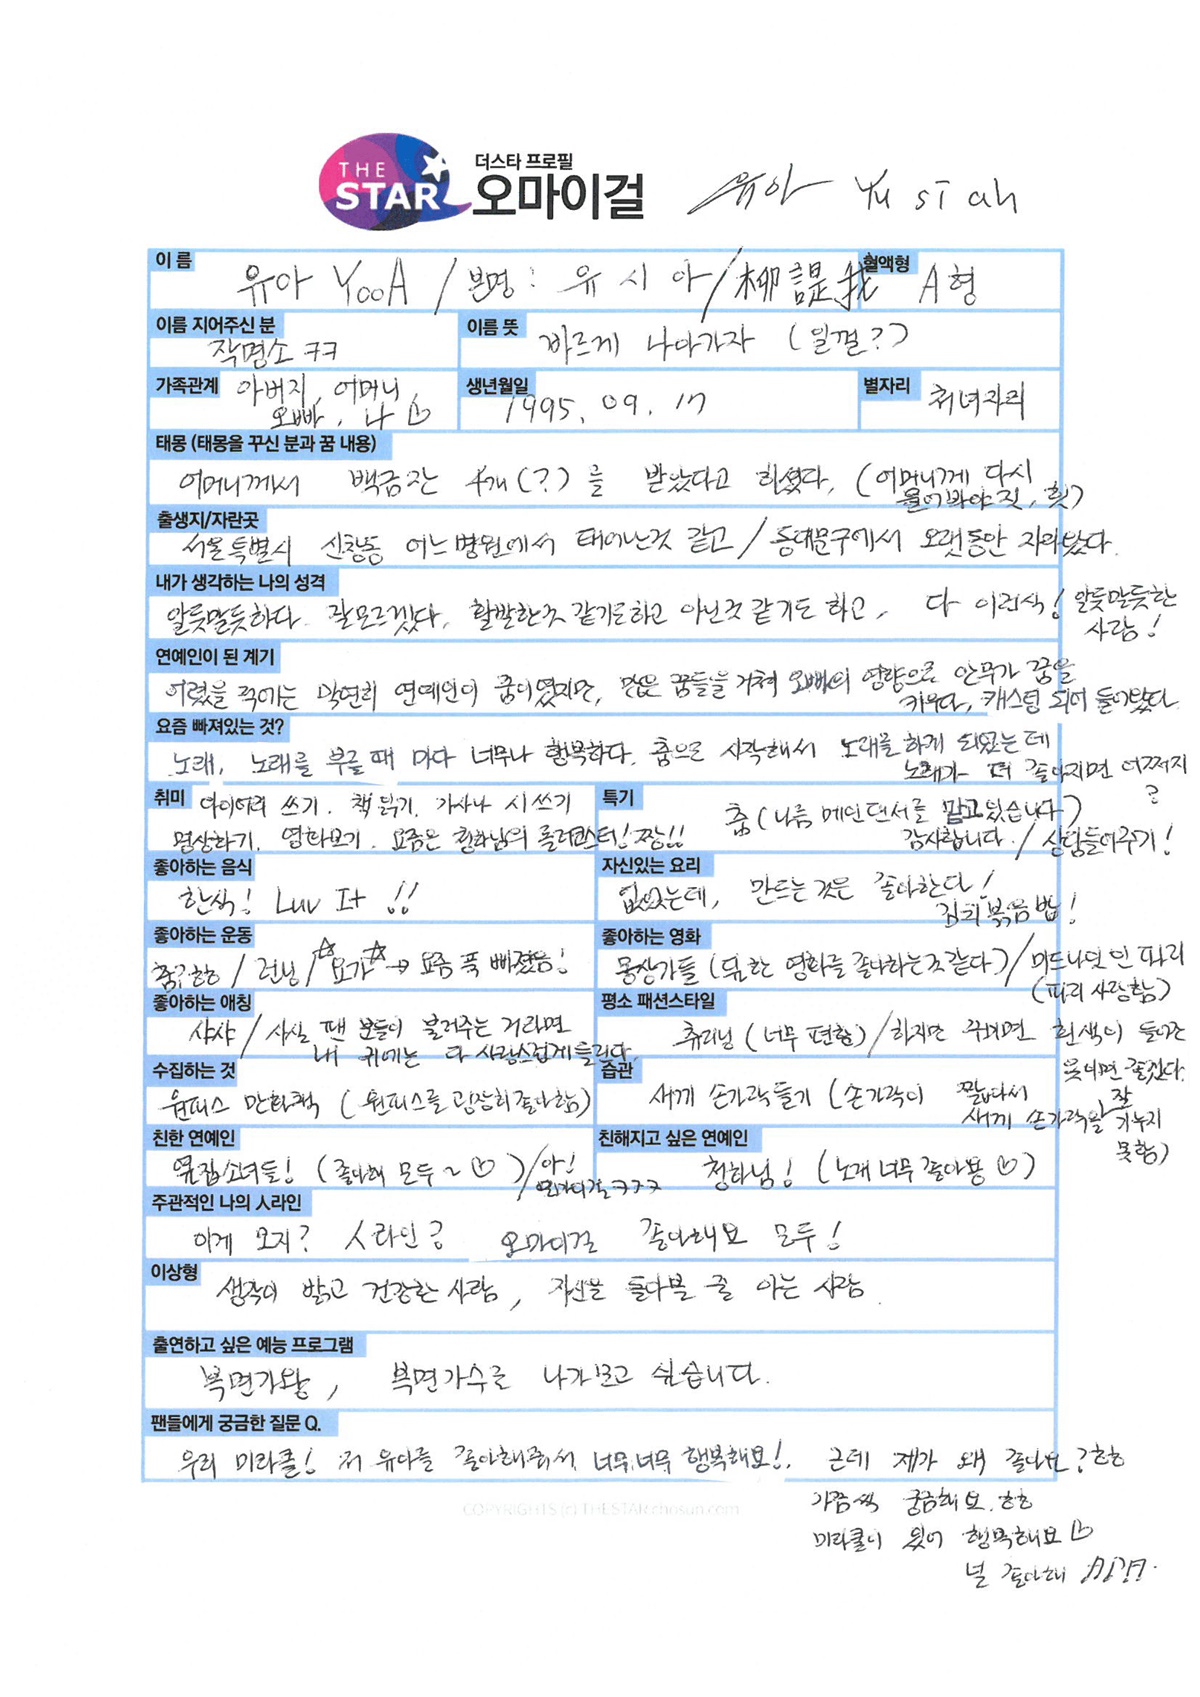 THE STAR
더스타 프로필
오마이걸
유아 Yu si ah
이 름
유아 YooA / 본명 : 유 시 아 / 柳諟我
혈액형
A형
이름 지어주신 분
작명소 ㅋㅋ
이름 뜻
바르게 나아가자 (일껄?)
가족관계
아버지, 어머니,
오빠, 나
생년월일
1995. 09. 17
별자리
처녀자리
태몽 (태몽을 꾸신 분과 꿈 내용)
어머니께서 백금잔 4개(?)를 받았다고 하셨다. (어머니께 다시
물어봐야 짓, 힛)
출생지/자란곳
서울특별시 신창동 어느 병원에서 태어난것 같고 / 동대문구에서 오랫동안 자라왔다.
내가 생각하는 나의 성격
알듯말듯하다. 잘모르겠다. 활발한것 같기도하고 아닌것 같기도 하고, 다 이런식! 알듯말듯한
사람!
연예인이 된 계기
어렸을 적에는 막연히 연예인이 꿈이였지만, 많은 꿈들을 거쳐 오빠의 영향으로 안무가 꿈을
키우다, 캐스팅 되어 들어왔다.
요즘 빠져있는 것?
노래, 노래를 부를 때 마다 너무나 행복하다. 춤으로 시작해서 노래를 하게 되었는데
노래가 더 좋아지면 어쩌지
?
취미
다이어리 쓰기. 책 읽기. 가사나 시쓰기
명상하기. 영화보기. 요즘은 청하님의 롤러코스터! 짱!!
특기
춤 (나름 메인댄서를 맡고있습니다)
감사합니다. / 상담들어주기!
좋아하는 음식
한식! Luv It !!
자신있는 요리
없었는데, 만드는 것은 좋아한다!
김치볶음밥!
좋아하는 운동
춤ㅎㅎ / 런닝 / ☆요가☆ → 요즘 푹 빠졌음!
좋아하는 영화
몽상가들 (딥한 영화를 좋아하는것 같다) / 미드나잇 인 파리
(파리 사랑함)
좋아하는 애칭
샤샤 / 사실 팬 분들이 불러주는 거라면
내 귀에는 다 사랑스럽게 들린다.
평소 패션스타일
츄리닝 (너무 편함) / 하지만 꾸미면 흰색이 들어간
옷이면 좋겠다.
수집하는 것
원피스 만화책 (원피스를 굉장히 좋아함)
습관
새끼 손가락들기 (손가락이 짧아서
새끼 손가락을 잘 가누지
못함)
친한 연예인
옆집소녀들! (좋아해 모두~) / 아!
오마이걸 ㅋㅋㅋ
친해지고 싶은 연예인
청하님! (노래 너무 좋아용)
주관적인 나의 人라인
이게 모지? 人라인? 오마이걸 좋아해요 모두!
이상형
생각이 밝고 건강한 사람, 자신을 돌아볼 줄 아는 사람.
출연하고 싶은 예능 프로그램
복면가왕, 복면가수로 나가보고 싶습니다.
팬들에게 궁금한 질문 Q.
우리 미라클! 저 유아를 좋아해줘서 너무너무 행복해요!. 근데 제가 왜 좋나요? ㅎㅎ
가끔씩 궁금해요. ㅎㅎ
미라클이 있어 행복해요
널 좋아해 샤샤.
COPYRIGHTS (c) THESTAR.chosun.com